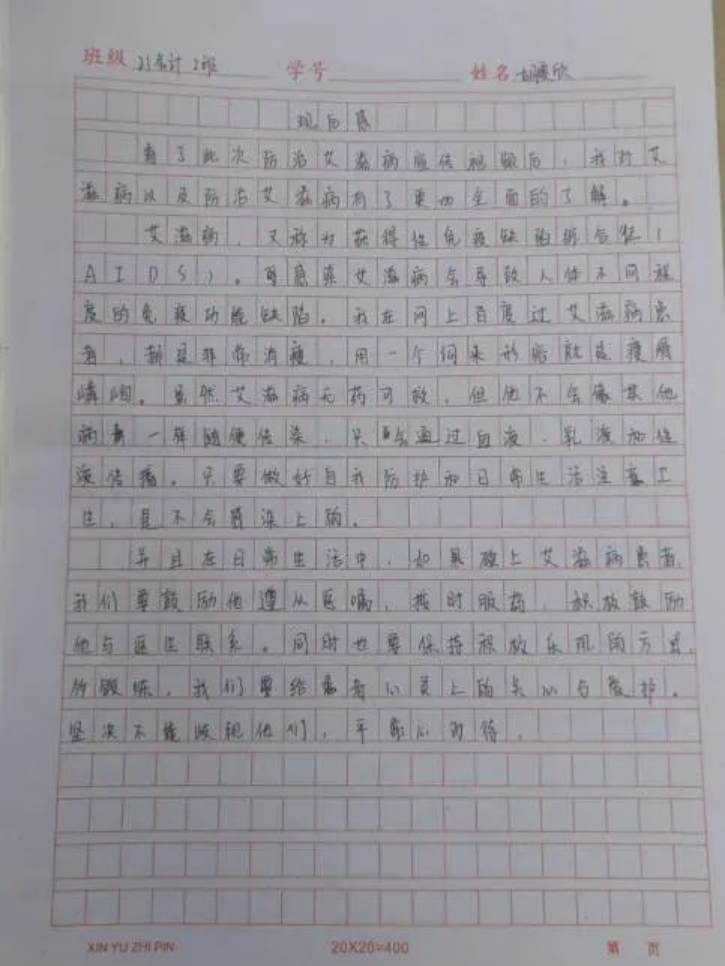 班级 21会计2班 学号 姓名
观后感
看了此次防治艾滋病宣传视频后，我对艾
滋病以及防治艾滋病有了更加全面的了解。
艾滋病，又称为获得性免疫缺陷综合征（
AIDS）。可感染艾滋病会导致人体不同程
度的免疫功能缺陷。我在网上百度过艾滋病患
者，都是非常消瘦，用一个词来形容就是瘦骨
嶙峋。虽然艾滋病无药可救，但他不会像其他
病毒一样随便传染，只会通过血液、乳液和性
液传播。只要做好自我防护和日常生活注意卫
生，是不会感染上的。
并且在日常生活中，如果碰上艾滋病患者，
我们要鼓励他遵从医嘱，按时服药，积极鼓励
他与医生联系。同时也要保持积极乐观的方式，
多锻炼。我们要给患者心灵上的关心与爱护。
坚决不能歧视他们，平常心对待。
XIN YU ZHI PIN 20X20=400 第 页